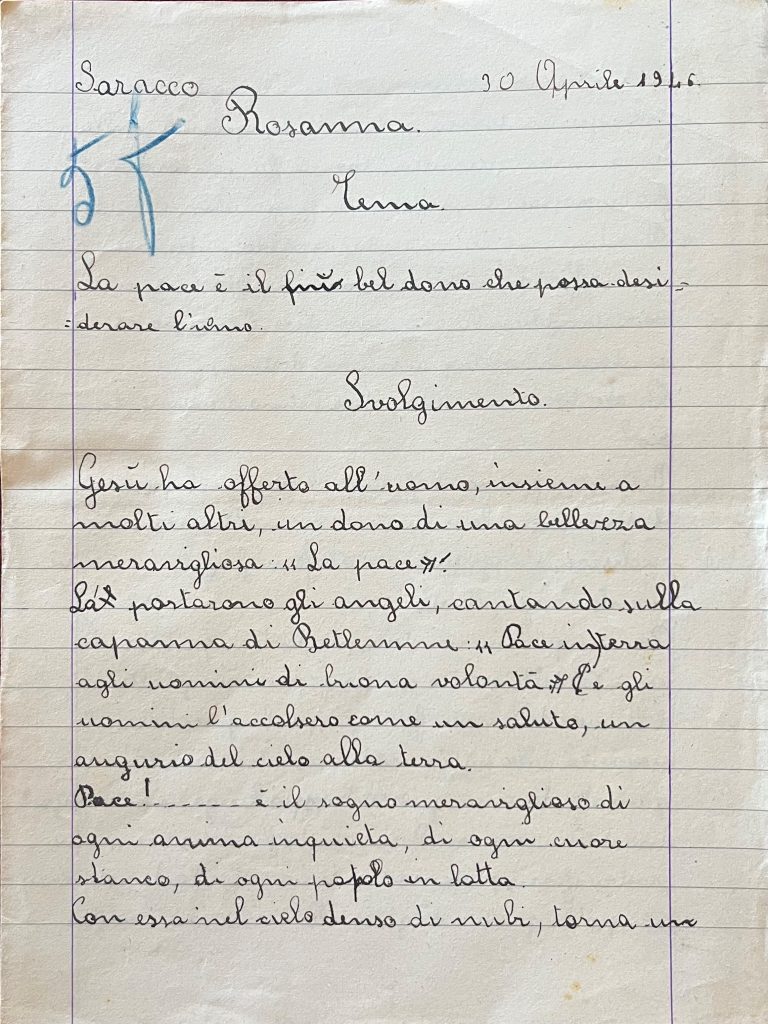 Saracco 30 Aprile 1946.
Rosanna.
Tema.
La pace è il più bel dono che possa desi=
=derare l'uomo.
Svolgimento.
Gesù ha offerto all'uomo, insieme a
molti altri, un dono di una bellezza
meravigliosa: « La pace »!
La portarono gli angeli, cantando sulla
capanna di Betlemme: « Pace in terra
agli uomini di buona volontà » e gli
uomini l'accolsero come un saluto, un
augurio del cielo alla terra.
Pace! ------ è il sogno meraviglioso di
ogni anima inquieta, di ogni cuore
stanco, di ogni popolo in lotta.
Con essa nel cielo denso di nubi, torna un